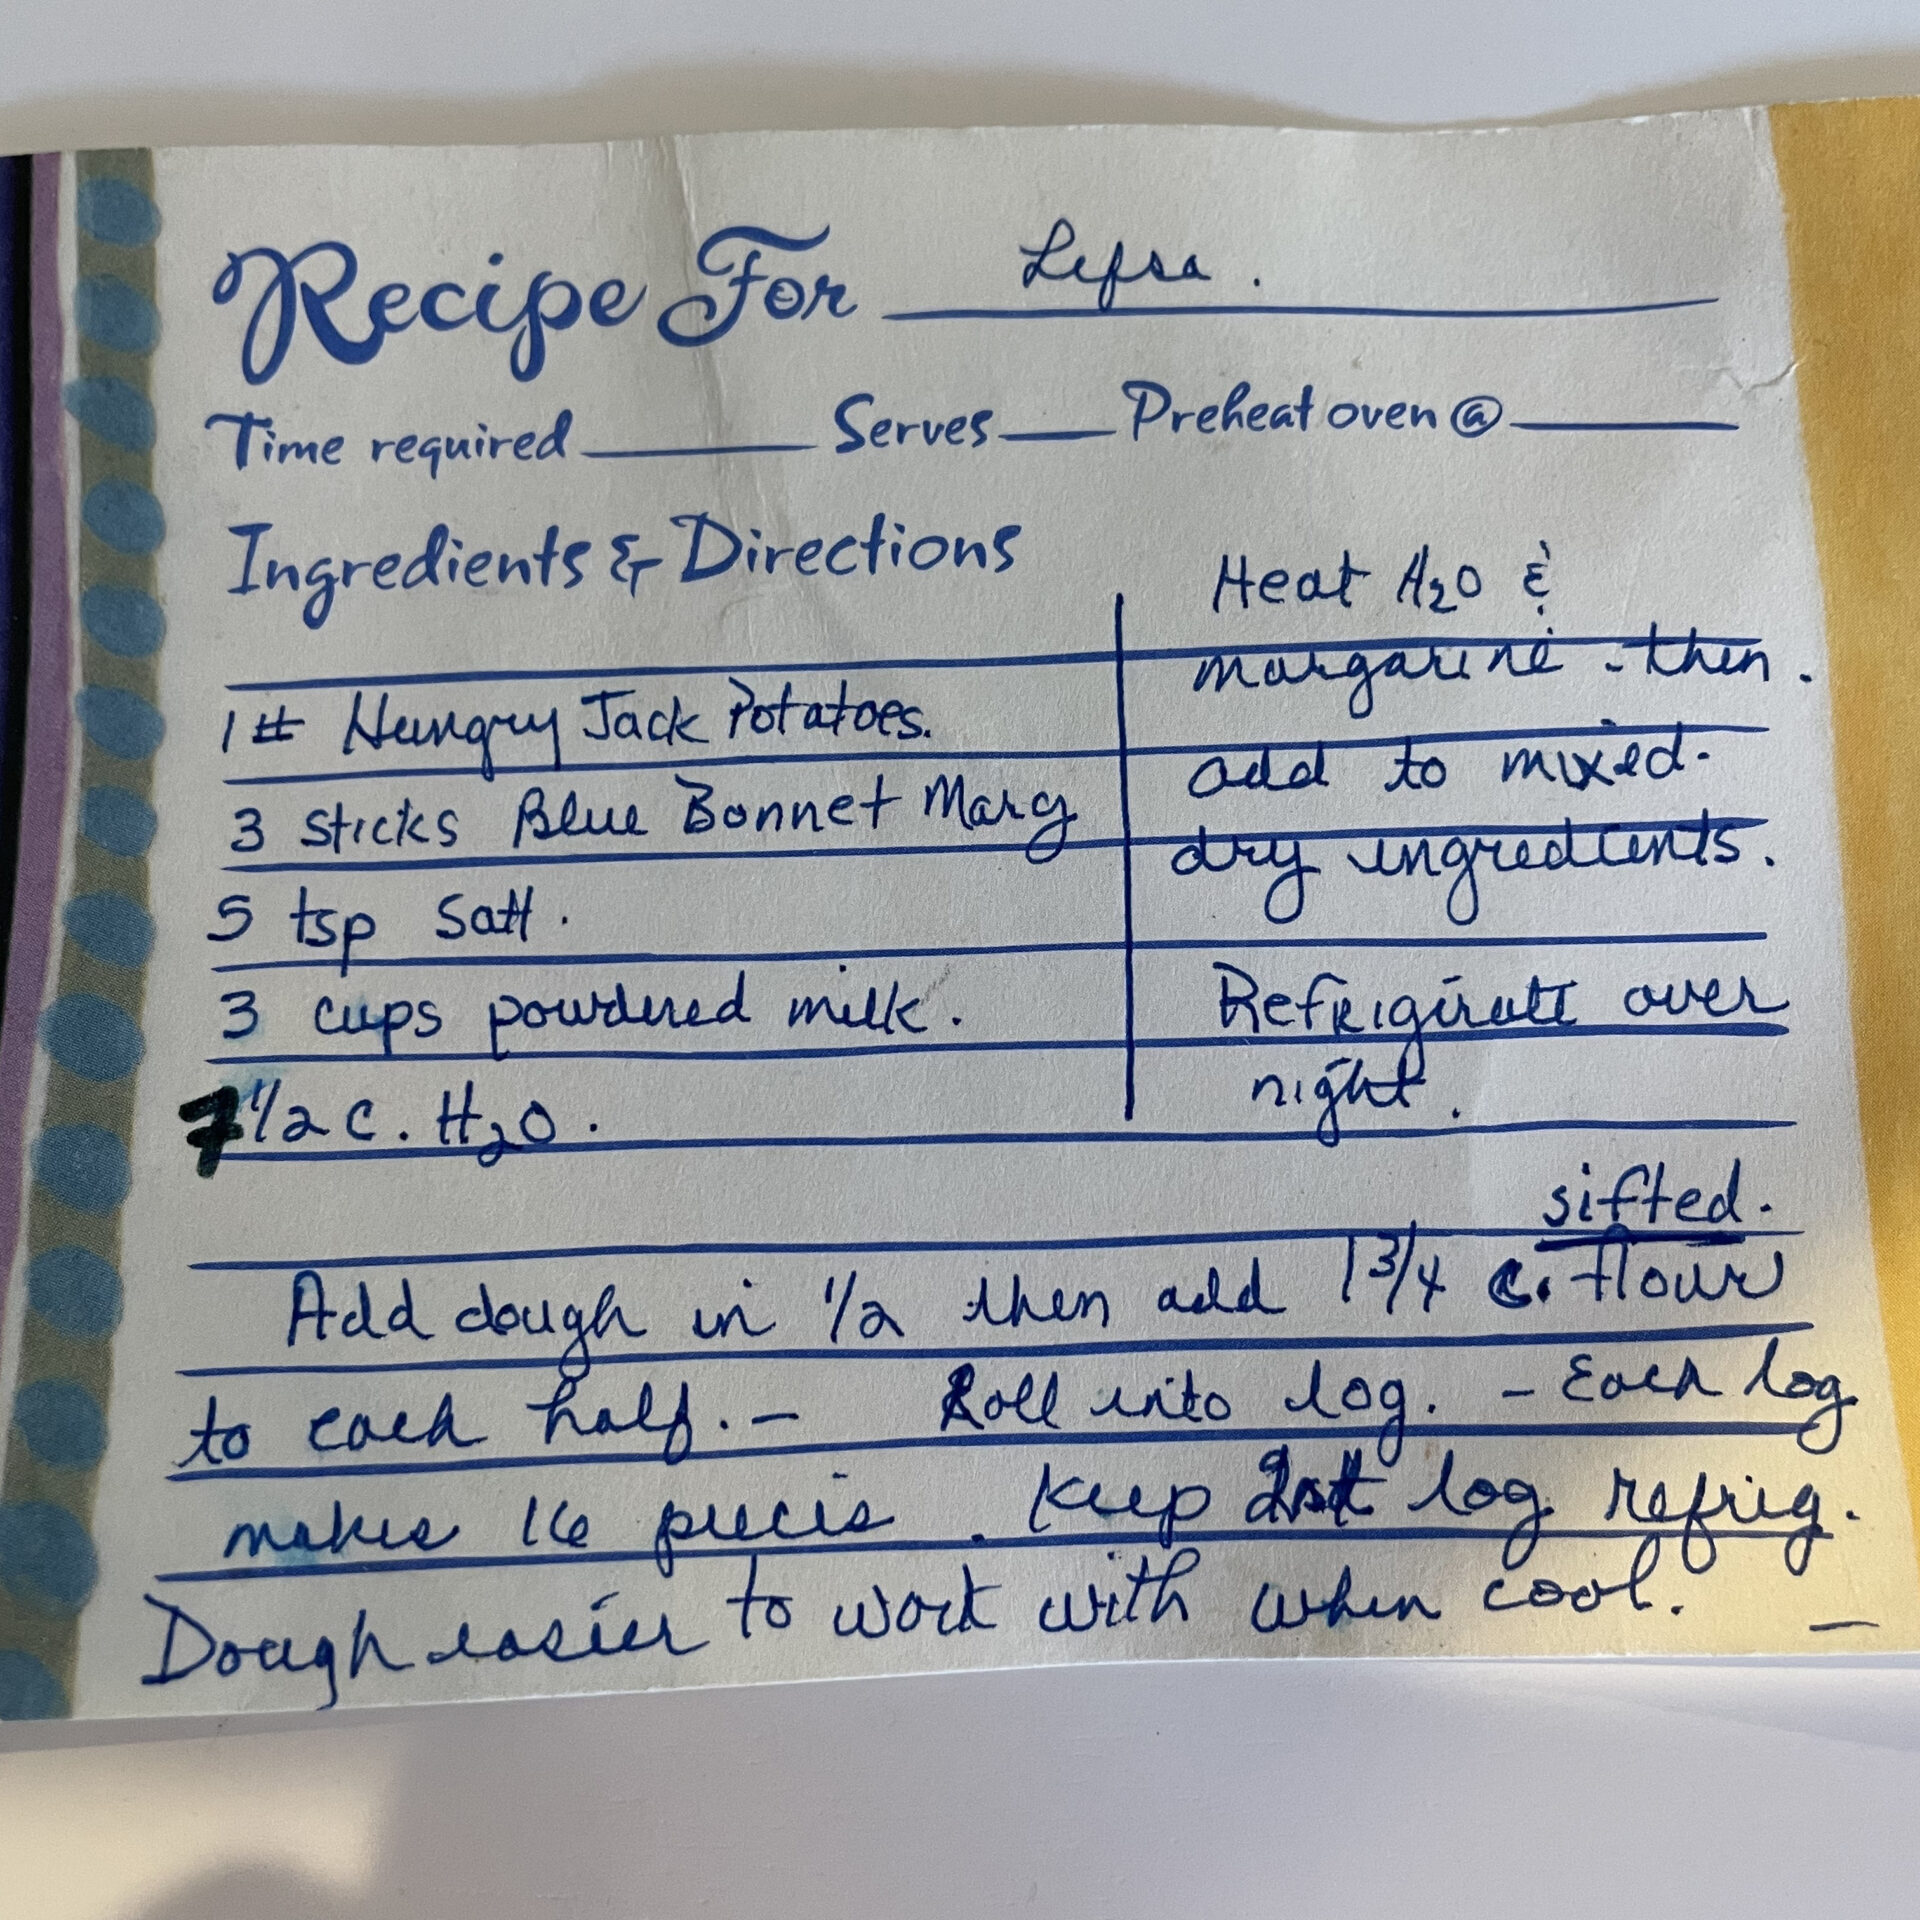 Recipe For Lefsa.
Time required Serves Preheat oven @
Ingredients & Directions
1# Hungry Jack Potatoes.
3 sticks Blue Bonnet Marg
5 tsp Salt.
3 cups powdered milk.
7 1/2 c. H2O.
Heat H2O &
margarine - then.
add to mixed.
dry ingredients.
Refrigirate over
night.
sifted.
Add dough in 1/2 then add 1 3/4 c. flour
to each half. - Roll into log. - Each log
makes 16 pieces. Keep log refrig.
Dough easier to work with when cool. -